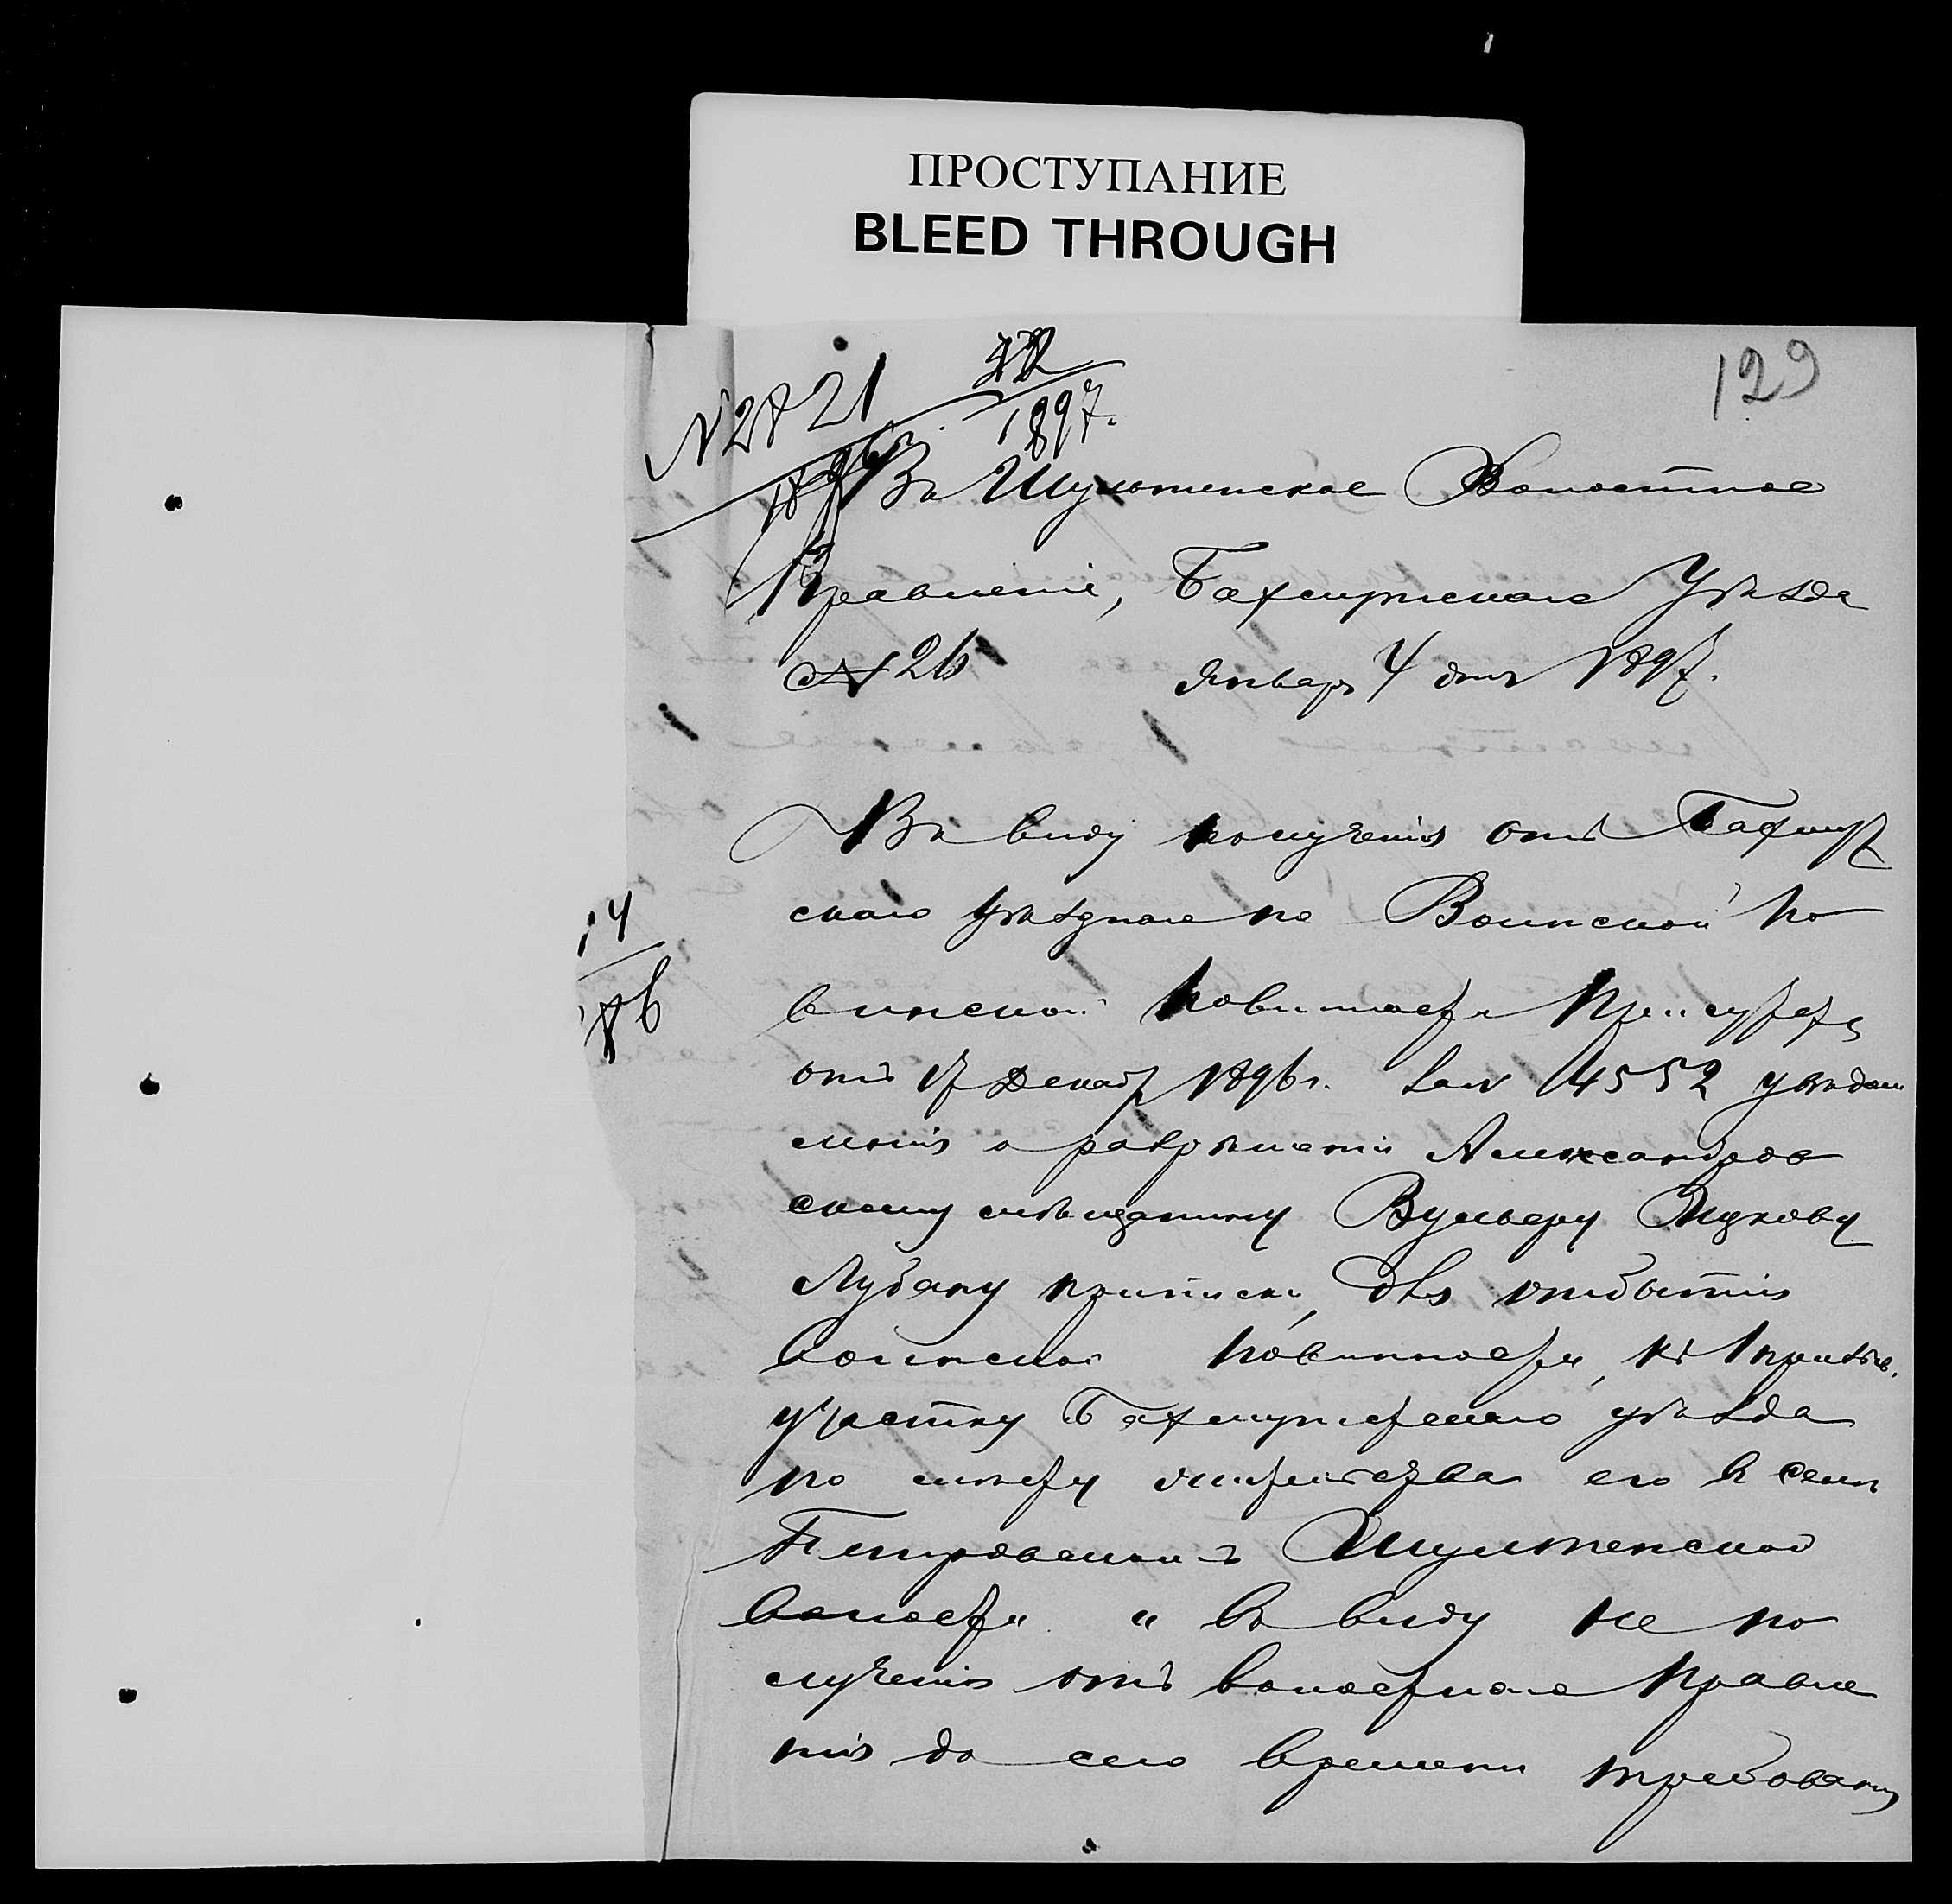 ПРОСТУПАНИЕ
BLEED THROUGH
129
N 2821
1896 г.
1897.
Въ Шульженское Волостное
Правленіе, Бахмутскаго Уѣзда
№ 26 Январь 4 дня 1897.
Въ виду полученія отъ Бахмут
скаго уѣзднаго по Воинской по
винской повинности Присутств
отъ 17 Декаб 1896 г. за N 4552 увѣдом
ленія о разрѣшеніи Александров
скому мѣщанину Вульфу Ицкову
приписки, для отбытія
воинской повинности, къ 1 призыв.
участку Бахмутскаго уѣзда
по мѣсту жительства его въ селѣ
Шульженской
волости и въ виду не по
лученія отъ волостнаго правле
нія до сего времени требованія